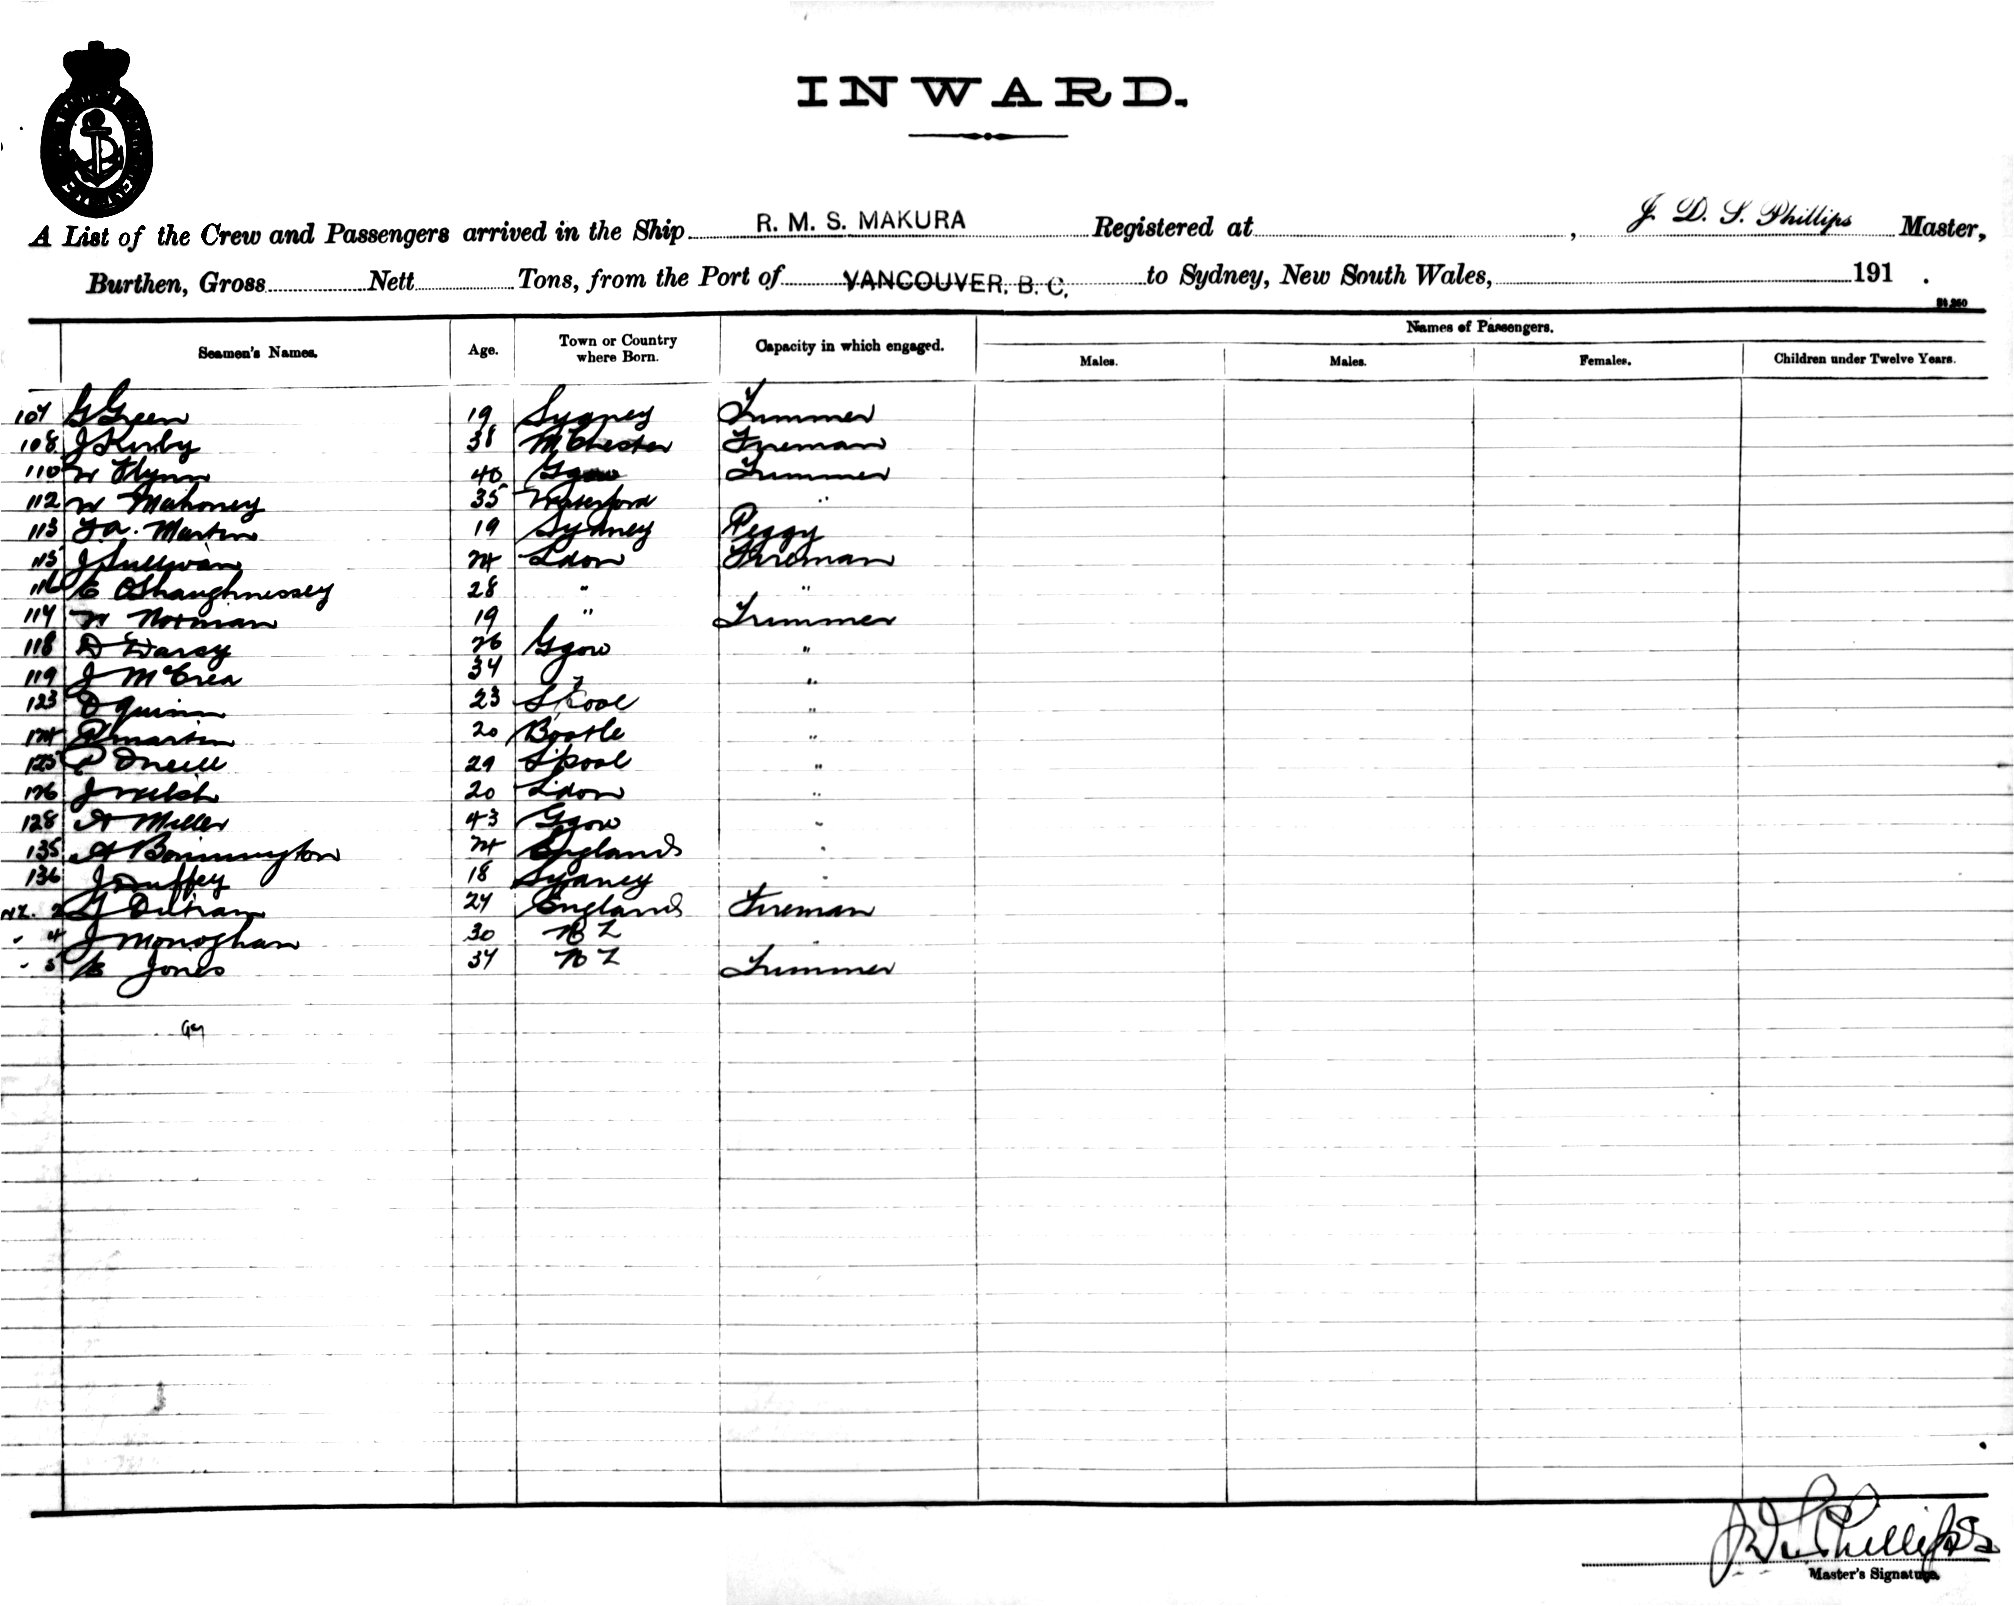 INWARD.
A List of the Crew and Passengers arrived in the Ship R. M. S. MAKURA Registered at , J. D. S. Phillips Master,
Burthen, Gross Nett Tons, from the Port of VANCOUVER, B. C. to Sydney, New South Wales, 191 .
Names of Passengers.
Seamen's Names. Age. Town or Country where Born. Capacity in which engaged. Males. Males. Females. Children under Twelve Years.
107 G Green 19 Sydney Trimmer
108 J Kirby 38 McChester Fireman
110 W Flynn 40 Ggow Trimmer
112 W Mahoney 35 Waterford "
113 F. A. Martin 19 Sydney Peggy
115 J Sullivan 24 Ldon Fireman
116 E OShaughnessey 28 " "
117 W Norman 19 " Trimmer
118 D Darcy 26 Ggow "
119 J McCrea 34 "
123 D Quinn 23 L'pool "
124 P Martin 20 Bootle "
125 P Oneill 29 L'pool "
126 J Welsh 20 L'don "
128 A Miller 43 Ggow "
135 A Bonnington 24 England "
136 J Duffey 18 Sydney "
NZ. 2 G Deltram 24 England Fireman
" 4 J Monoghan 30 N Z "
" 5 E Jones 34 N Z Trimmer
J D S Phillips
Master's Signature.